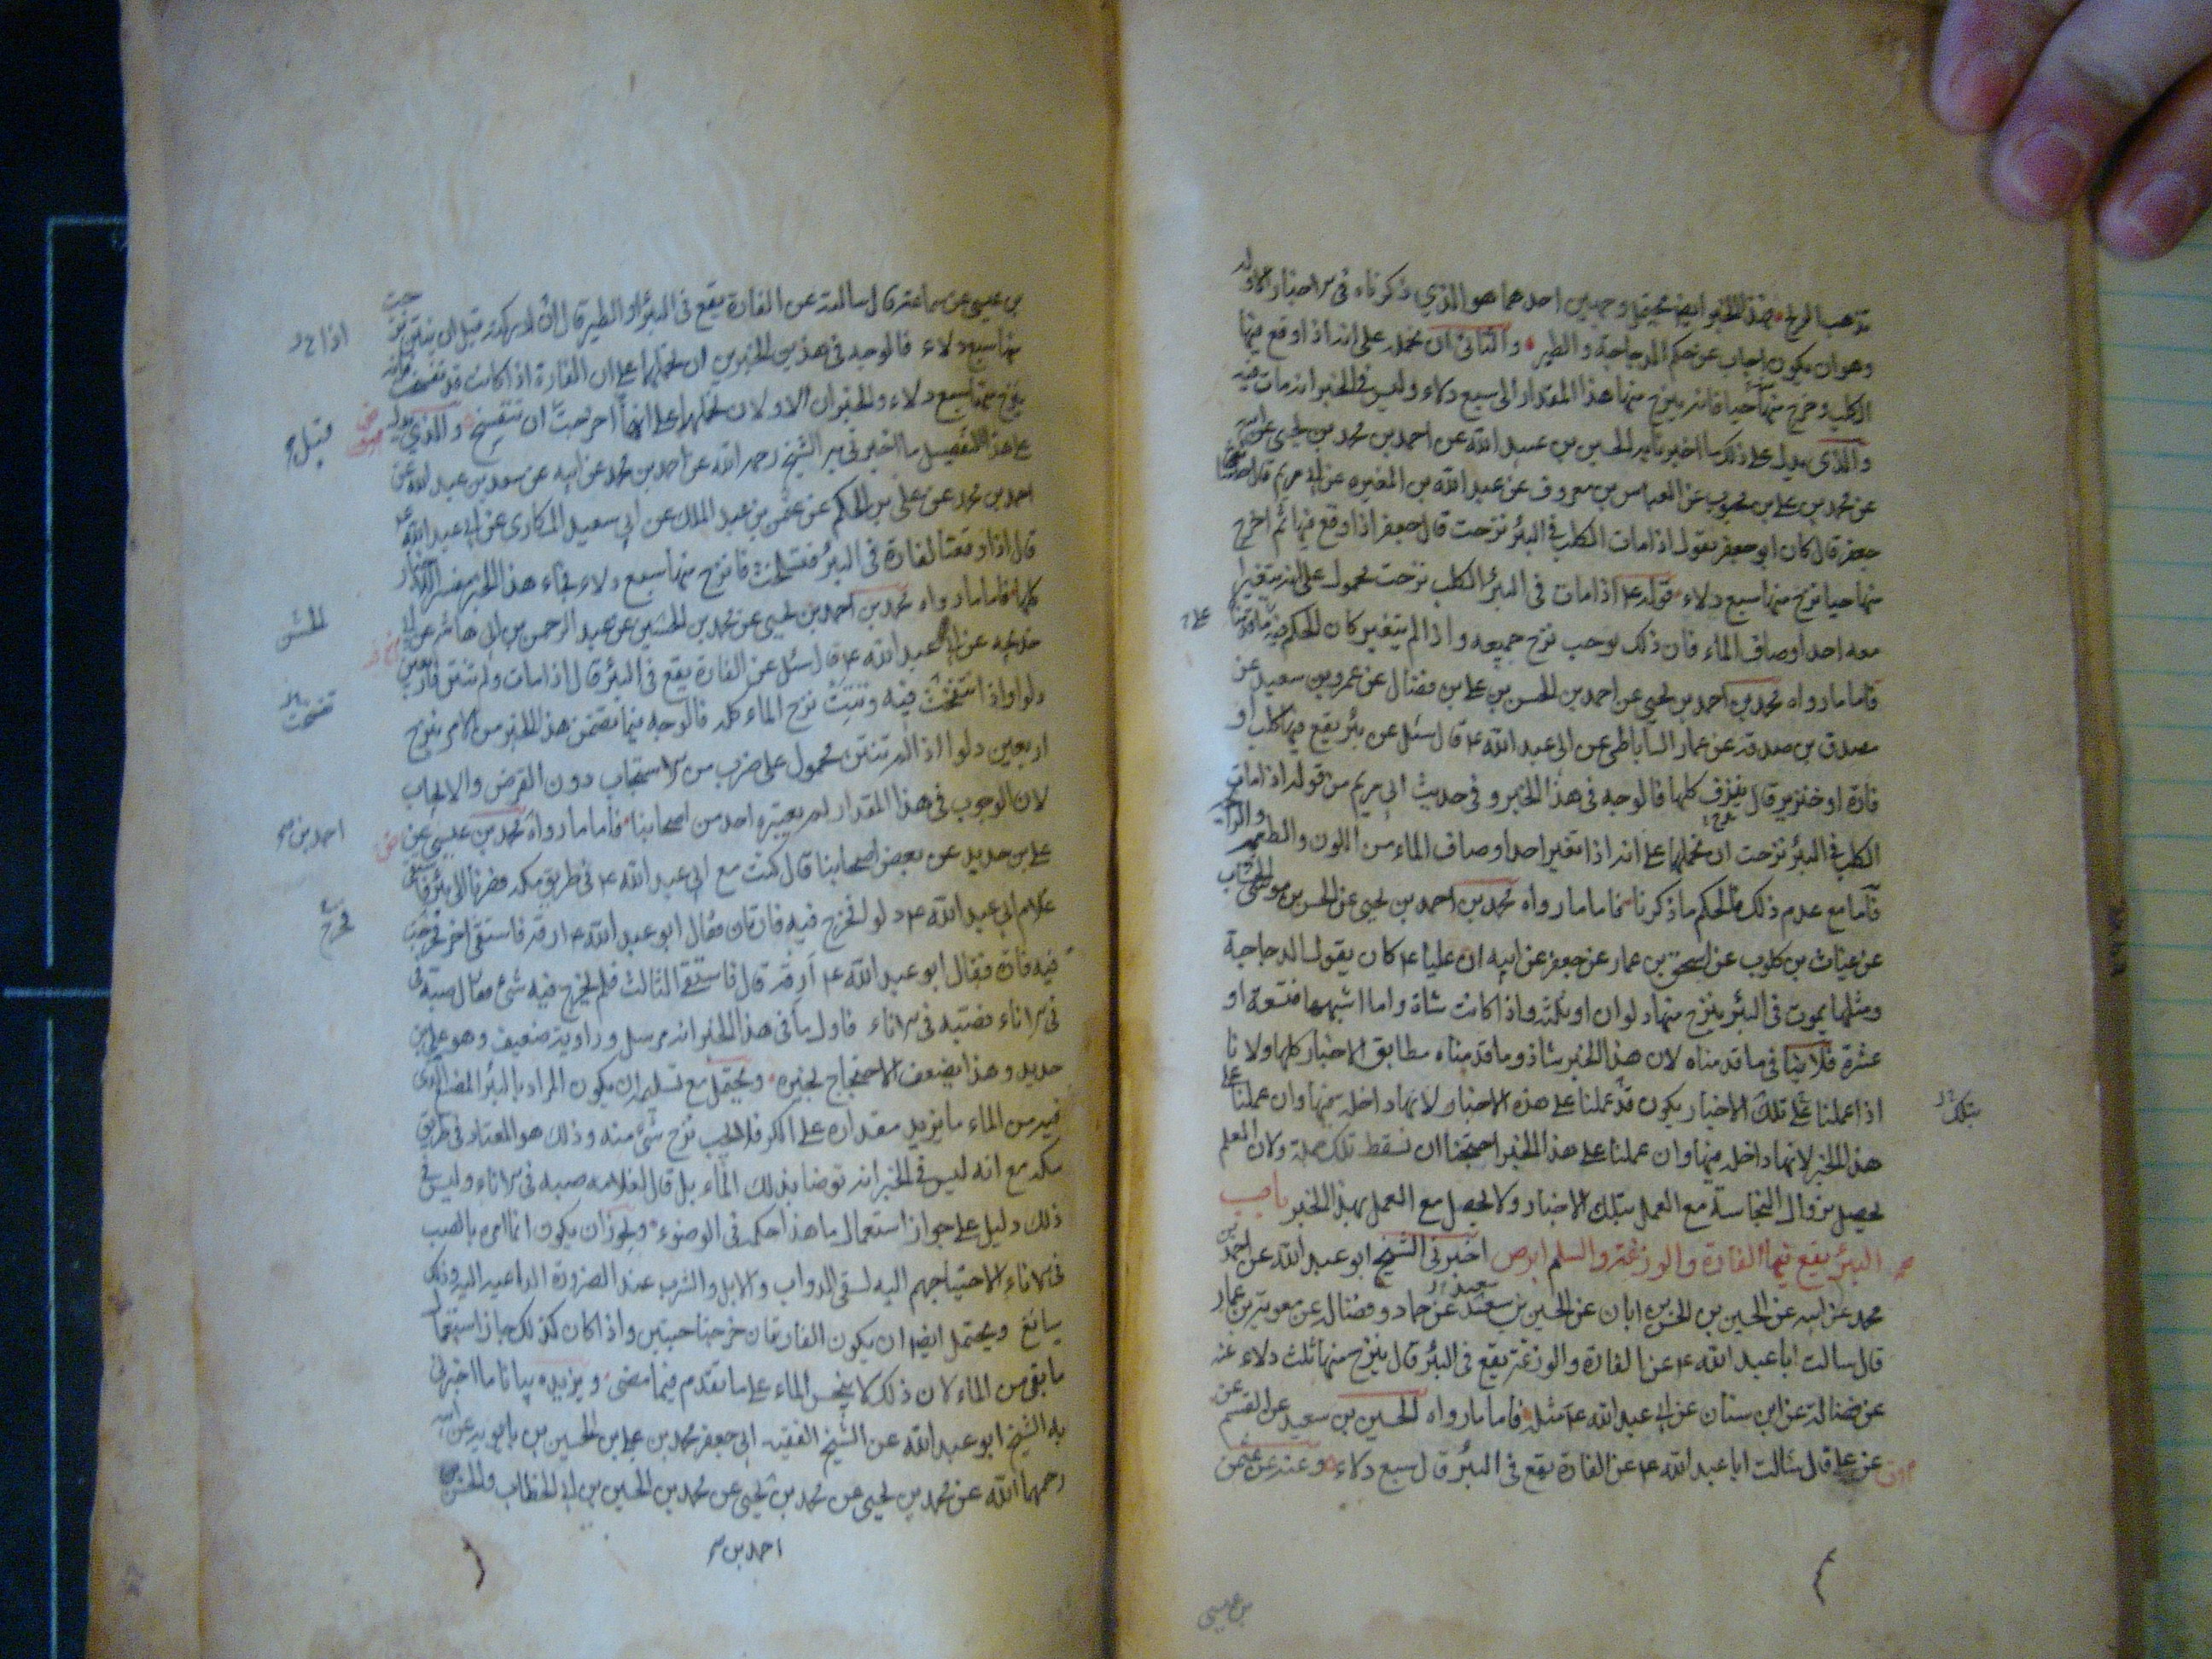 تذهب الريح فهذا الخبر ايضا يحتمل وجهين احدهما هو الذي ذكرناه في الاخبار الاوله
وهو ان يكون اجاب عن حكم الدجاجة والطير والثاني ان نحمله على انه اذا وقع فيها
الكلب وخرج منها حيا فانه ينزح منها هذا المقدار الى سبع دلاء وليس في الخبر انه مات فيه
والذي يدل على ذلك ما اخبرنا به الحسين بن عبيد الله عن احمد بن محمد بن يحيى عن ابيه
عن محمد بن علي بن محبوب عن العباس بن معروف عن عبد الله بن المغيره عن ابي مريم قال حدثنا
جعفر قال كان ابو جعفر يقول اذا مات الكلب في البئر نزحت قال جعفر اذا وقع فيها ثم اخرج
منها حيا نزح منها سبع دلاء قوله ع اذا مات في البئر الكلب نزحت محمول على انه يتغير
معه احد اوصاف الماء فان ذلك يوجب نزح جميعه واذا لم يتغير كان الحكم فيه ما قدمناه
فاما ما رواه محمد بن احمد بن يحيى عن احمد بن الحسن بن علي بن فضال عن عمرو بن سعيد عن
مصدق بن صدقه عن عمار الساباطي عن ابي عبد الله ع قال سئل عن بئر يقع فيها كلب او
فارة او خنزير قال ينزف كلها فالوجه في هذا الخبر وفي حديث ابي مريم من قوله اذا مات
الكلب في البئر نزحت ان نحملها على انه اذا تغير احد اوصاف الماء من اللون والطعم والرائحه
فاما مع عدم ذلك فالحكم ما ذكرنا فاما ما رواه محمد بن احمد بن يحيى عن الحسن بن موسى الخشاب
عن غياث بن كلوب عن اسحق بن عمار عن جعفر عن ابيه ان عليا ع كان يقول الدجاجة
ومثلها يموت في البئر ينزح منها دلوان او ثلثه واذا كانت شاة وما اشبهها فتسعة او
عشرة فلا ينافي ما قدمناه لان هذا الخبر شاذ وما قدمناه مطابق الاخبار كلها ولانا
اذا عملنا على تلك الاخبار يكون قد عملنا على هذه الاخبار لانها داخله فيها وان عملنا على
بتلك
هذا الخبر لانها داخله فيها وان عملنا على هذا الخبر احتجنا ان نسقط تلك جملة ولان العلم
يحصل بزوال النجاسة مع العمل بتلك الاخبار ولا يحصل مع العمل بهذا الخبر باب
البئر يقع فيها الفارة والوزغة والسلم ابرص اخبرني الشيخ ابو عبد الله عن احمد بن
محمد عن ابيه عن الحسين بن الحسن بن ابان عن الحسين بن سعيد عن حماد وفضالة عن معوية بن عمار
قال سالت ابا عبد الله ع عن الفارة والوزغة يقع في البئر قال ينزح منها ثلث دلاء عنه
عن فضالة عن ابن سنان عن ابي عبد الله ع مثله فاما ما رواه الحسين بن سعيد عن القسم عن
عن علي قال سالت ابا عبد الله ع عن الفارة يقع في البئر قال سبع دلاء وعنه عن عثمن
بن عيسى
بن عيسى عن سماعة قال سالته عن الفارة يقع في البئر او الطير قال ان ادركته قبل ان ينتن نزحت
منها سبع دلاء فالوجه في هذين الخبرين ان نحملهما على ان الفارة اذا كانت قد تفسخت فانه
ينزح منها سبع دلاء والخبران الاولان نحملهما على انها اخرجت قبل ان تتفسخ والذي يدل
على هذا التفصيل ما اخبرني به الشيخ رحمه الله عن احمد بن محمد عن ابيه عن سعد بن عبد الله عن
احمد بن محمد عن علي بن الحكم عن عثمن بن عبد الملك عن ابي سعيد المكاري عن ابي عبد الله ع
قال اذا وقعت الفارة في البئر فتسلخت فانزح منها سبع دلاء فجاء هذا الخبر مفسرا للاخبار
كلها فاما ما رواه محمد بن احمد بن يحيى عن محمد بن الحسين عن عبد الرحمن بن ابي هاشم عن ابي
خديجه عن ابي عبد الله ع قال سئل عن الفارة يقع في البئر قال اذا مات ولم تنتن فاربعين
دلوا واذا انتفخت فيه ونتنت نزح الماء كله فالوجه فيما تضمن هذا الخبر من الامر بنزح
اربعين دلوا اذا لم تنتن محمول على ضرب من الاستحباب دون الفرض والايجاب
لان الوجوب في هذا المقدار لم يعتبره احد من اصحابنا فاما ما رواه محمد بن عيسى عن
احمد بن محمد
علي بن حديد عن بعض اصحابنا قال كنت مع ابي عبد الله ع في طريق مكه فصرنا الى بئر فاستقى
غلام ابي عبد الله ع دلوا فخرج فيه فارتان فقال ابو عبد الله ع ارقه فاستقى اخر فخرجت
فيه فارة فقال ابو عبد الله ع ارقه قال فاستقى الثالث فلم يخرج فيه شئ فقال صبه في
في الاناء فصبه في الاناء فاول ما في هذا الخبر انه مرسل وراويه ضعيف وهو علي بن
حديد وهذا يضعف الاحتجاج بخبره ويحتمل مع تسليمه ان يكون المراد بالبئر المصنع الذي
فيه من الماء ما يزيد مقداره على الكر فلا يجب نزح شئ منه وذلك هو المعتاد في طريق
مكه مع انه ليس في الخبر انه توضا بذلك الماء بل قال لغلامه صبه في الاناء وليس في
ذلك دليل على جواز استعمال ما هذا حكمه في الوضوء ويجوز ان يكون انما امره بالصب
في الاناء لاحتياجهم اليه لسقي الدواب والابل والشرب عند الضرورة الداعيه اليه وذلك
سائغ ويحتمل ايضا ان يكون الفارتان خرجتا حيتين واذا كان كذلك جاز استعمال
ما بقي من الماء لان ذلك لا ينجس الماء على ما تقدم فيما مضى ويزيده بيانا ما اخبرني
به الشيخ ابو عبد الله عن الشيخ الفقيه ابي جعفر محمد بن علي بن الحسين بن بابويه عن ابيه
رحمهما الله عن محمد بن يحيى عن محمد بن يحيى عن محمد بن الحسين بن ابي الخطاب والحسن
احمد بن محمد